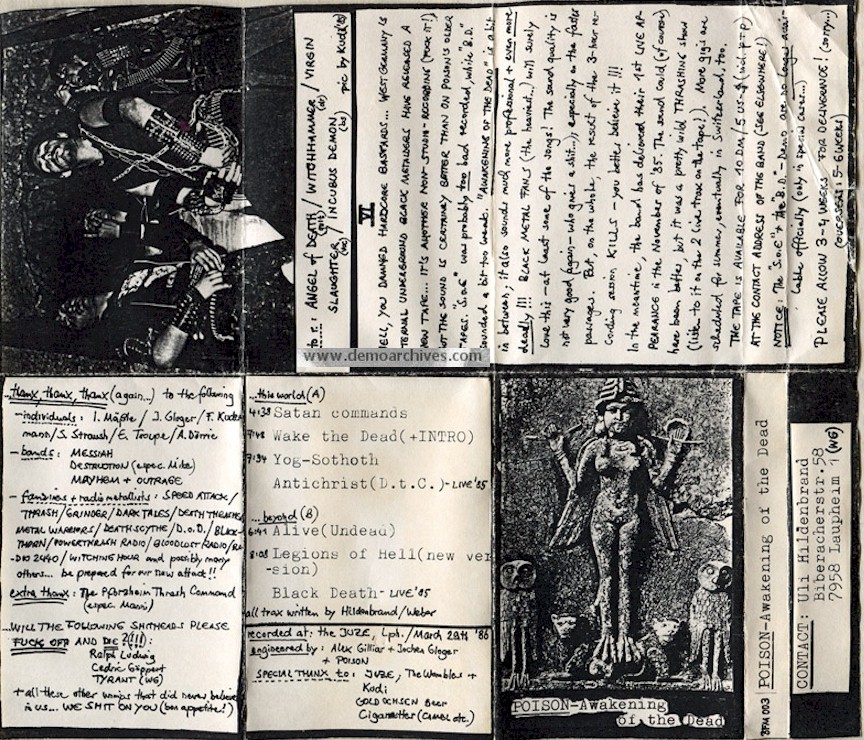 to r.: ANGEL of DEATH / WITCHHAMMER / VIRGIN
SLAUGHTER / INCUBUS DEMON
pic by Kudi ('85)
VI
HELL, YOU DAMNED HARDCORE BASTARDS... WEST GERMANY'S
ETERNAL UNDERGROUND BLACK METALLERS HAVE RELEASED A
NEW TAPE... IT'S ANOTHER NON-STUDIO-RECORDING (FUCK IT!)
BUT THE SOUND IS CERTAINLY BETTER THAN ON POISON'S OLDER
TAPES. "S.o.E" was probably too bad recorded, while "B.D."
sounded a bit too weak. "AWAKENING OF THE DEAD" is a bit
in between; it also sounds much more professional + even more
deadly!!! BLACK METAL FANS (the heaviest...) will surely
love this - at least some of the songs! The sound quality is
not very good again - who gives a shit...), especially on the faster
passages. But, on the whole, the result of the 3-hour re-
cording session KILLS - you better believe it!!!
In the meantime, the band has delivered their 1st LIVE AP-
PEARANCE in the November of '85. The sound could (of course)
have been better but it was a pretty wild THRASHING show
(listen to it on the 2 live trax on the tape!). More gigs are
scheduled for summer, eventually in Switzerland, too.
THE TAPE IS AVAILABLE FOR 10 DM / 5 US-$ (incl. p+p)
AT THE CONTACT ADDRESS OF THE BAND (SEE ELSEWHERE!)
NOTICE: The "S.o.E" + the "B.D."-Demo are no longer avai-
lable officially (only in special cases...)
PLEASE ALLOW 3-4 WEEKS FOR DELIVERANCE! (sorry...)
(OVERSEAS: 5-6 WEEKS)
www.demoarchives.com
...thanx, thanx, thanx (again...) to the following
- individuals: I. Mäßle / J. Gloger / F. Kuder
mann / S. Straush / E. Troupe / A. Dörrie
- bands: MESSIAH
DESTRUCTION (espec. Mike)
MAYHEM + OUTRAGE
- fanzines + radio metallists: SPEED ATTACK /
THRASH / GRINDER / DARK TALES / DEATH THRASHER
METAL WARRIORS / DEATHSCYTHE / D.o.D. / BLACK-
THORN / POWERTHRASH RADIO / BLOODLUST RADIO / RA-
DIO 2440 / WITCHING HOUR and possibly many
others... be prepared for our new attack!!
extra thanx: The Pforzheim Thrash Command
(espec. Manni)
...WILL THE FOLLOWING SHITHEADS PLEASE
FUCK OFF AND DIE ?(!!!):
Ralph Ludwig
Cedric Göppert
TYRANT (WG)
+ all these other wimps that did never believe
in us... WE SHIT ON YOU (bon appetite!)
...this world (A)
4:38 Satan commands
7:48 Wake the Dead(+INTRO)
7:34 Yog-Sothoth
Antichrist(D.t.C.)- LIVE '85
...beyond (B)
6:41 Alive(Undead)
8:08 Legions of Hell(new ver
-sion)
Black Death- LIVE '85
all trax written by Hildenbrand / Weber
recorded at: the JUZE, Lph. / March 28th '86
engineered by: Alex Gilliar + Jochen Gloger
+ POISON
SPECIAL THANX to: JUZE, The Wombles +
Kudi
GOLDOCHSEN Beer
Cigarretter (CAMEL etc.)
POISON-Awakening
of the Dead
BFM 003 POISON-Awakening of the Dead
CONTACT: Uli Hildenbrand
Biberacherstr.58
7958 Laupheim 1 (WG)